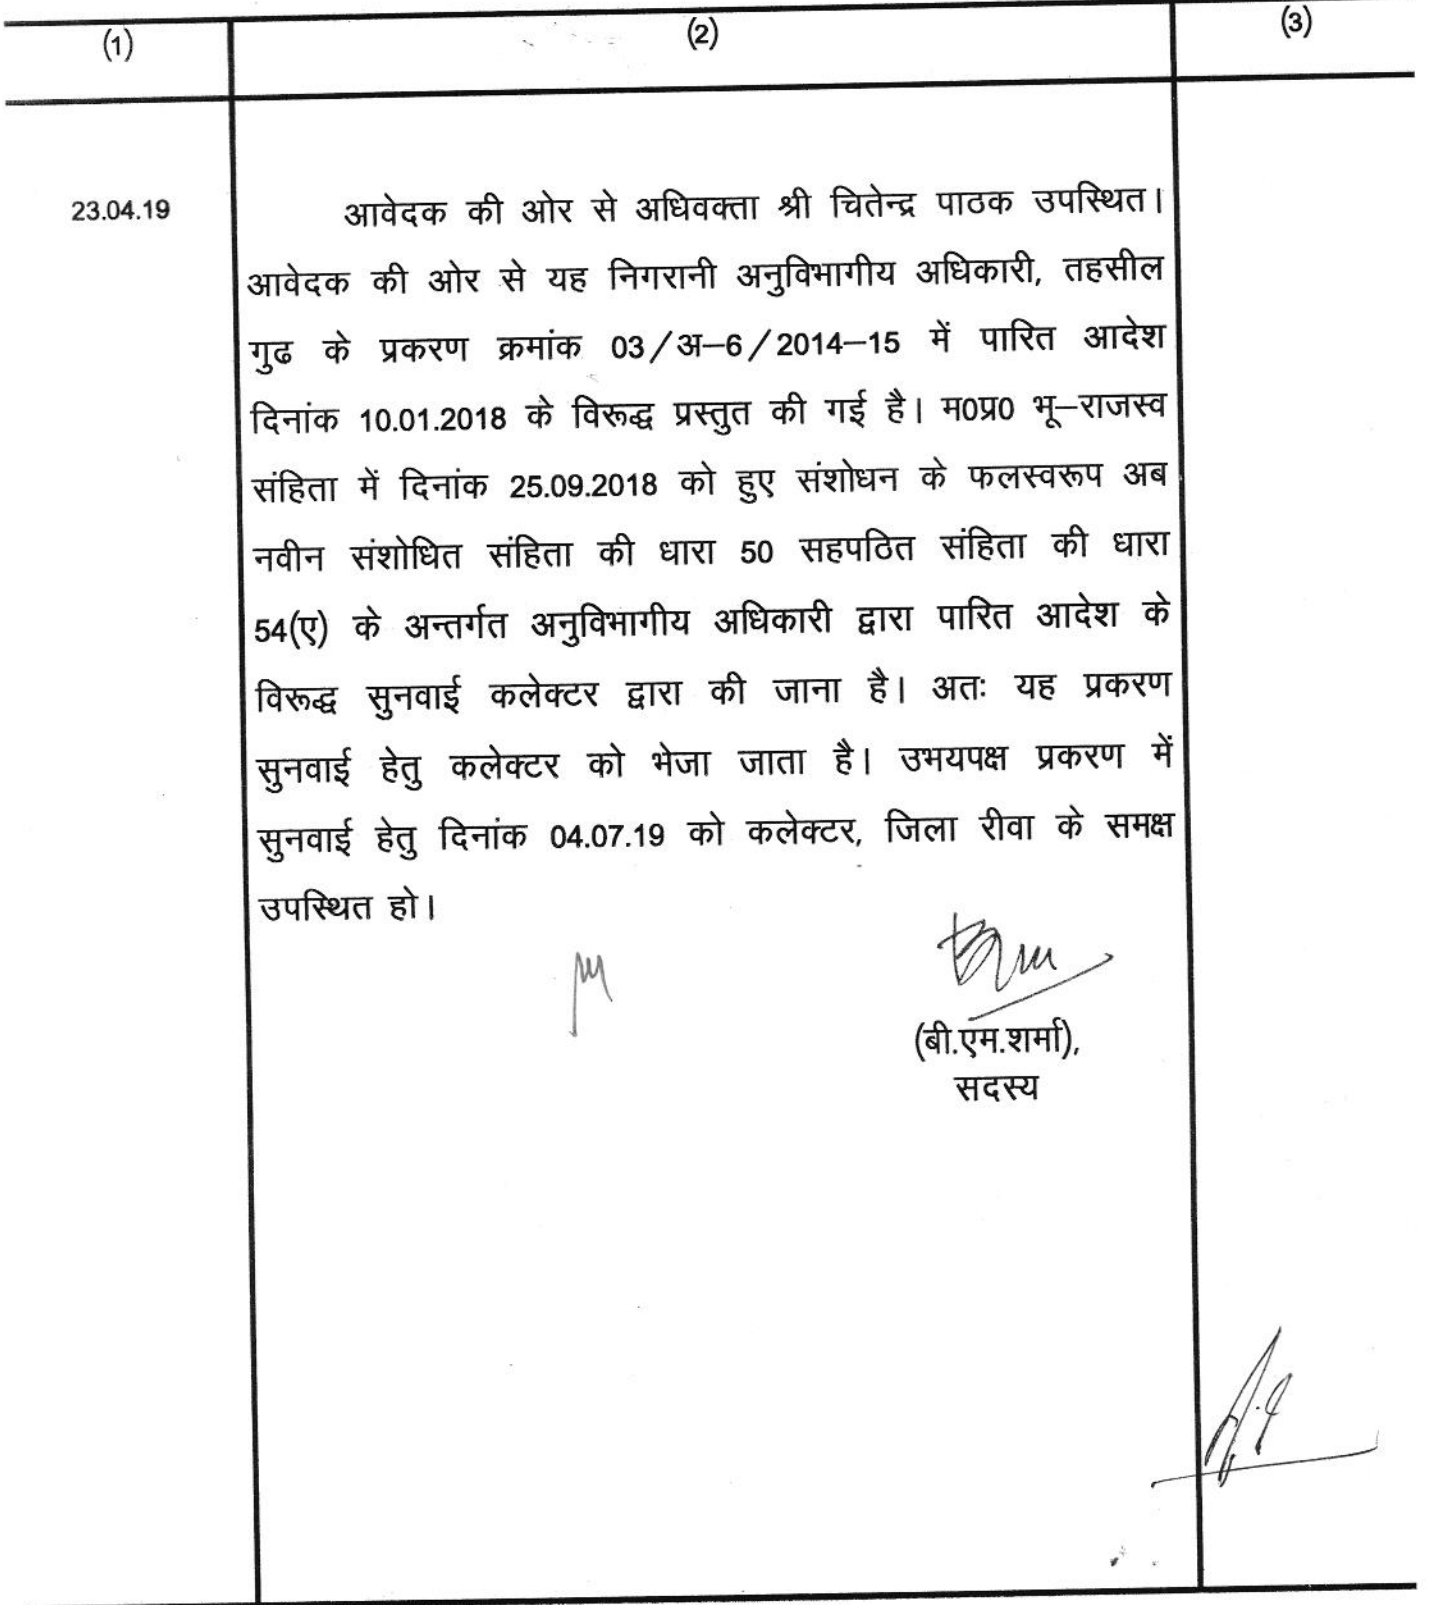 (1) (2) (3)
23.04.19 आवेदक की ओर से अधिवक्ता श्री चितेन्द्र पाठक उपस्थित।
आवेदक की ओर से यह निगरानी अनुविभागीय अधिकारी, तहसील
गुढ के प्रकरण क्रमांक 03/अ–6/2014–15 में पारित आदेश
दिनांक 10.01.2018 के विरूद्ध प्रस्तुत की गई है। म0प्र0 भू–राजस्व
संहिता में दिनांक 25.09.2018 को हुए संशोधन के फलस्वरूप अब
नवीन संशोधित संहिता की धारा 50 सहपठित संहिता की धारा
54(ए) के अन्तर्गत अनुविभागीय अधिकारी द्वारा पारित आदेश के
विरूद्ध सुनवाई कलेक्टर द्वारा की जाना है। अतः यह प्रकरण
सुनवाई हेतु कलेक्टर को भेजा जाता है। उभयपक्ष प्रकरण में
सुनवाई हेतु दिनांक 04.07.19 को कलेक्टर, जिला रीवा के समक्ष
उपस्थित हो।
(बी.एम.शर्मा),
सदस्य